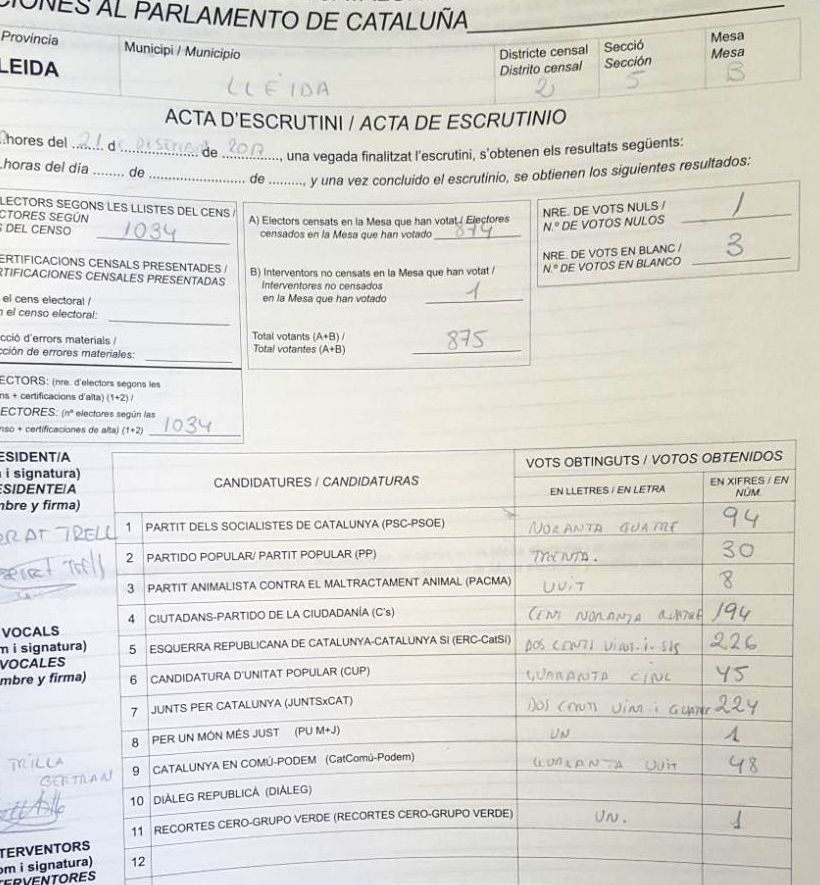 CIONES AL PARLAMENTO DE CATALUÑA
Provincia
LEIDA
Municipi / Municipio
LLEIDA
Districte censal
Distrito censal
2
Secció
Sección
5
Mesa
Mesa
B
ACTA D'ESCRUTINI / ACTA DE ESCRUTINIO
hores del 21 d DISEMBRE de 2017, una vegada finalitzat l'escrutini, s'obtenen els resultats següents:
horas del día ........ de ........ de ........, y una vez concluido el escrutinio, se obtienen los siguientes resultados:
LECTORS SEGONS LES LLISTES DEL CENS /
CTORES SEGÚN
S DEL CENSO 1034
ERTIFICACIONS CENSALS PRESENTADES /
RTIFICACIONES CENSALES PRESENTADAS
el cens electoral /
n el censo electoral:
cció d'errors materials /
cción de errores materiales:
ECTORS: (nre. d'electors segons les
ns + certificacions d'alta) (1+2) /
ECTORES: (nº electores según las
nso + certificaciones de alta) (1+2) 1034
A) Electors censats en la Mesa que han votat / Electores
censados en la Mesa que han votado 874
B) Interventors no censats en la Mesa que han votat /
Interventores no censados
en la Mesa que han votado 1
Total votants (A+B) /
Total votantes (A+B) 875
NRE. DE VOTS NULS /
N.º DE VOTOS NULOS 1
NRE. DE VOTS EN BLANC /
N.º DE VOTOS EN BLANCO 3
ESIDENT/A
i signatura)
ESIDENTE/A
mbre y firma)
TRELL
VOCALS
m i signatura)
VOCALES
mbre y firma)
TRILLA
BERTRAN
TERVENTORS
om i signatura)
TERVENTORES
CANDIDATURES / CANDIDATURAS
VOTS OBTINGUTS / VOTOS OBTENIDOS
EN LLETRES / EN LETRA
EN XIFRES / EN
NÚM.
1 PARTIT DELS SOCIALISTES DE CATALUNYA (PSC-PSOE) NORANTA QUATRE 94
2 PARTIDO POPULAR/ PARTIT POPULAR (PP) TRENTA. 30
3 PARTIT ANIMALISTA CONTRA EL MALTRACTAMENT ANIMAL (PACMA) VUIT 8
4 CIUTADANS-PARTIDO DE LA CIUDADANÍA (C's) CENT NORANTA QUATRE 194
5 ESQUERRA REPUBLICANA DE CATALUNYA-CATALUNYA SI (ERC-CatSí) DOS CENTS VINT-I-SIS 226
6 CANDIDATURA D'UNITAT POPULAR (CUP) QUARANTA CINC 45
7 JUNTS PER CATALUNYA (JUNTSxCAT) DOS CENTS VINT I QUATRE 224
8 PER UN MÓN MÉS JUST (PU M+J) UN 1
9 CATALUNYA EN COMÚ-PODEM (CatComú-Podem) QUARANTA VUIT 48
10 DIÀLEG REPUBLICÀ (DIÀLEG)
11 RECORTES CERO-GRUPO VERDE (RECORTES CERO-GRUPO VERDE) UN. 1
12